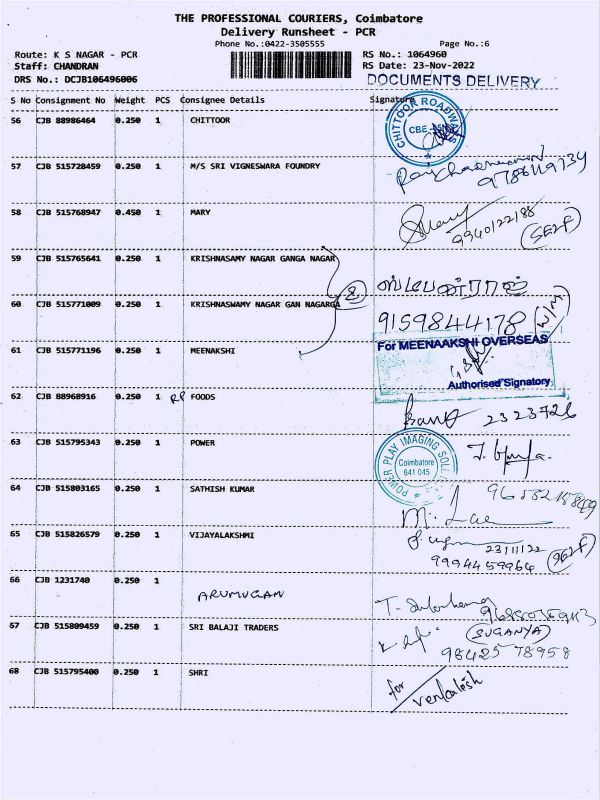 THE PROFESSIONAL COURIERS, Coimbatore
Delivery Runsheet - PCR
Phone No.:0422-3505555 Page No.:6
Route: K S NAGAR - PCR RS No.: 1064960
Staff: CHANDRAN RS Date: 23-Nov-2022
DRS No.: DCJB106496006 DOCUMENTS DELIVERY
S No Consignment No Weight PCS Consignee Details Signature
56 CJB 88986464 0.250 1 CHITTOOR
CHITTOOR ROADWAYS
CBE
57 CJB 515728459 0.250 1 M/S SRI VIGNESWARA FOUNDRY
58 CJB 515768947 0.450 1 MARY
9940122188 (SELF)
59 CJB 515765641 0.250 1 KRISHNASAMY NAGAR GANGA NAGAR
60 CJB 515771009 0.250 1 KRISHNASWAMY NAGAR GAN NAGARGA
9159844178
61 CJB 515771196 0.250 1 MEENAKSHI
For MEENAAKSHI OVERSEAS
Authorised Signatory
62 CJB 88968916 0.250 1 RP FOODS
2323726
63 CJB 515795343 0.250 1 POWER
POWER PLAY IMAGING
Coimbatore
641 045
64 CJB 515803165 0.250 1 SATHISH KUMAR
65 CJB 515826579 0.250 1 VIJAYALAKSHMI
23/11/22
9994459964 (SELF)
66 CJB 1231740 0.250 1 ARUMUGAM
67 CJB 515809459 0.250 1 SRI BALAJI TRADERS
(SUGANYA)
98425 78958
68 CJB 515795400 0.250 1 SHRI
for
venkatesh